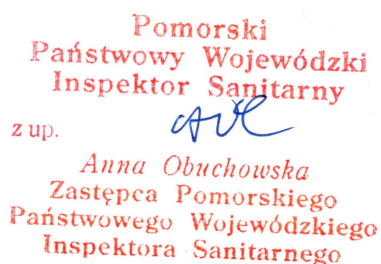 Pomorski
Państwowy Wojewódzki
Inspektor Sanitarny
z up.
Anna Obuchowska
Zastępca Pomorskiego
Państwowego Wojewódzkiego
Inspektora Sanitarnego